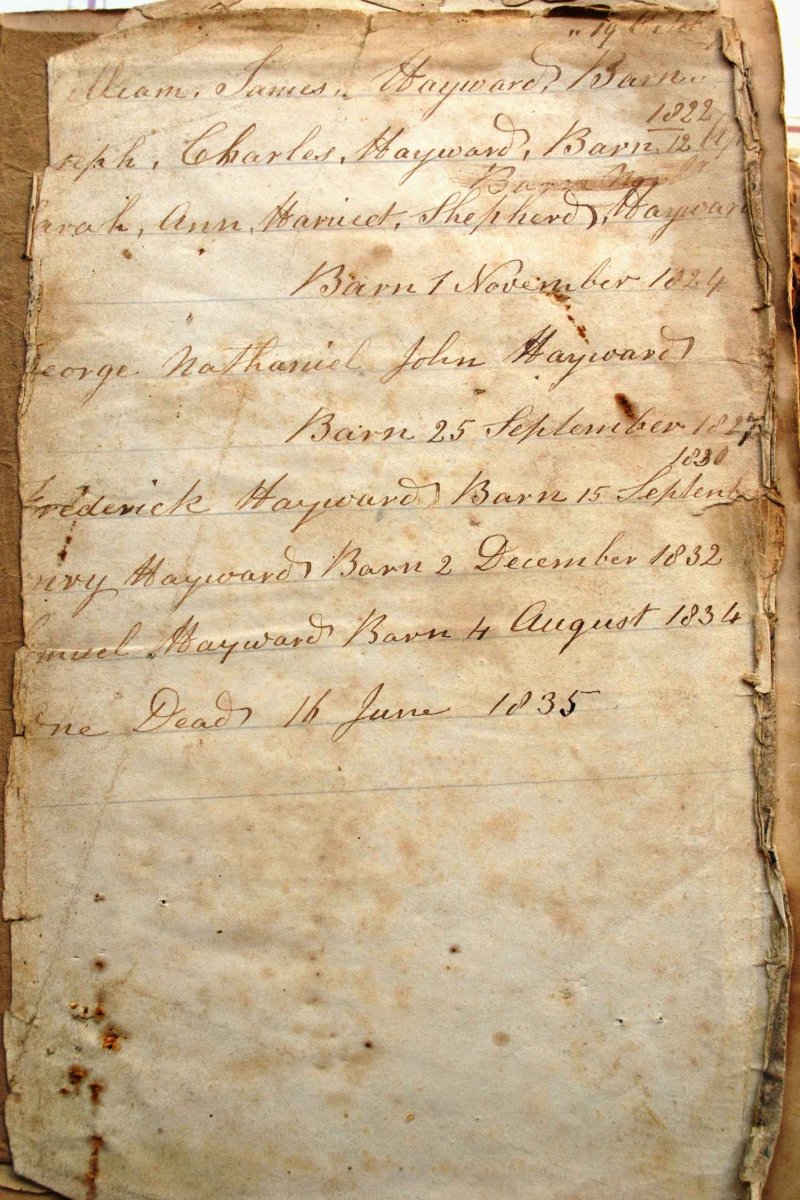 " 19
lliam, James, Hayward, Barn
1822
seph, Charles, Hayward, Barn 12 Ap
Barn
arah, Ann, Harriet, Shepherd, Haywar
Barn 1 November 1824
eorge Nathaniel John Hayward
Barn 25 September 1827
1830
Frederick Hayward Barn 15 Septemb
nry Hayward Barn 2 December 1832
muel Hayward Barn 4 August 1834
ne Dead 16 June 1835